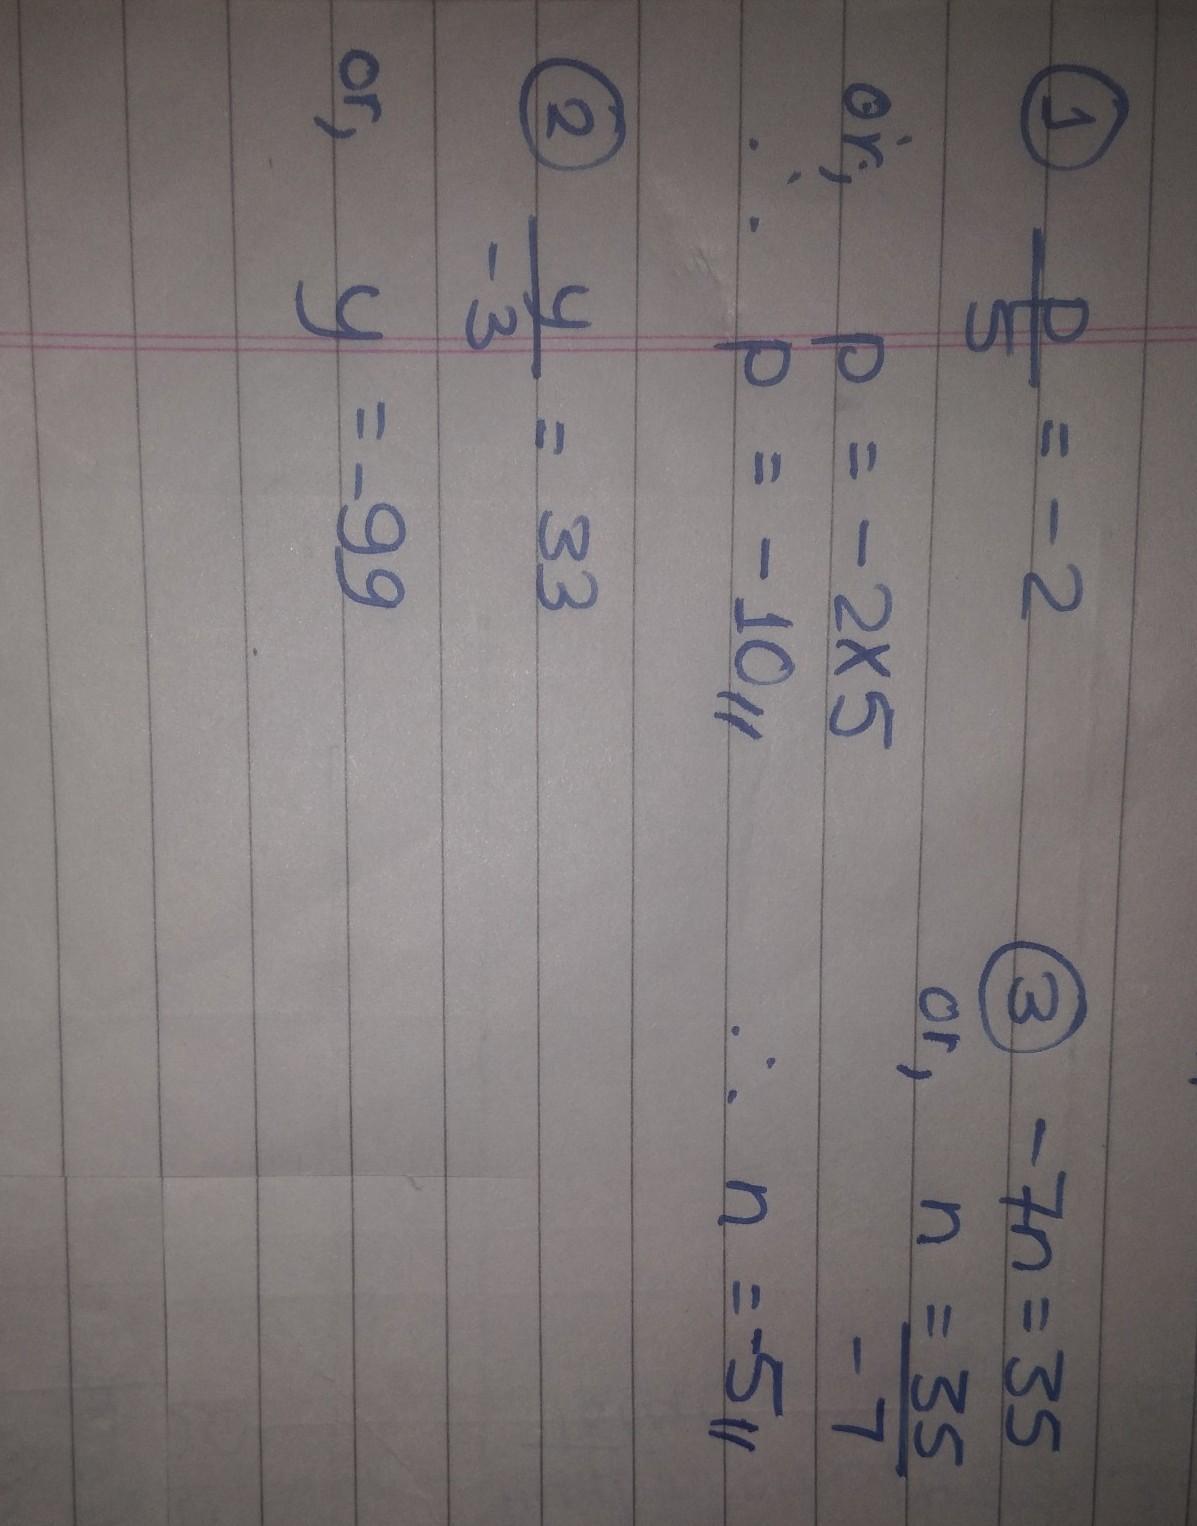 ① p/5 = -2
or, p = -2×5
∴ p = -10//
② y/-3 = 33
or, y = -99
③ -7n = 35
or, n = 35/-7
∴ n = -5//